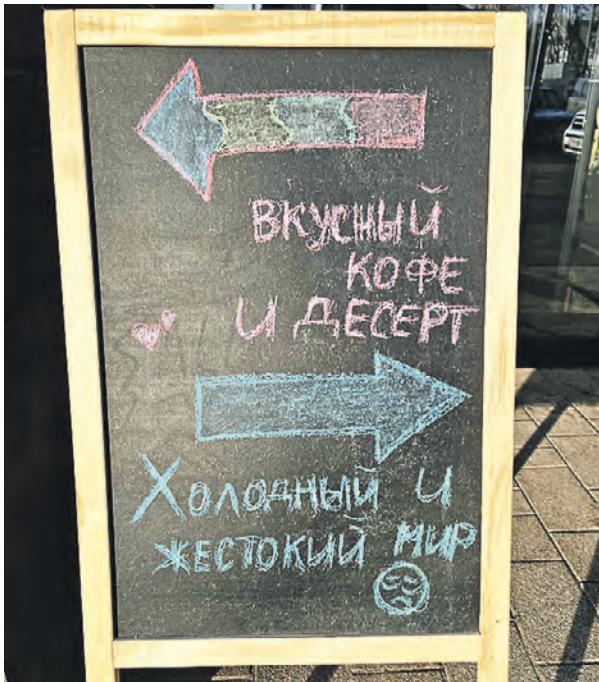 ВКУСНЫЙ
КОФЕ
И ДЕСЕРТ
ХОЛОДНЫЙ И
ЖЕСТОКИЙ МИР